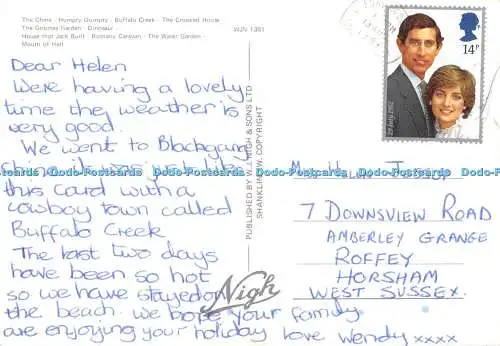 The Chine · Humpty Dumpty · Buffalo Creek · The Crooked House
The Gnomes Garden · Dinosaur
House that Jack Built · Romany Caravan · The Water Garden ·
Mouth of Hell
WJN 1361
Dear Helen
Were having a lovely
time the weather is
very good.
We went to Blackgang
this Card with a
cowboy town called
Buffalo Creek
The last two days
have been so hot
so we have stayed on
the beach. we hope your family
are enjoying your holiday love Wendy xxxx
PUBLISHED BY W.J. NIGH & SONS LTD
SHANKLIN I.W. COPYRIGHT
Nigh
14P
29 July 1981
7 DOWNSVIEW ROAD
AMBERLEY GRANGE
ROFFEY
HORSHAM
WEST SUSSEX.
www.xPostcards.com